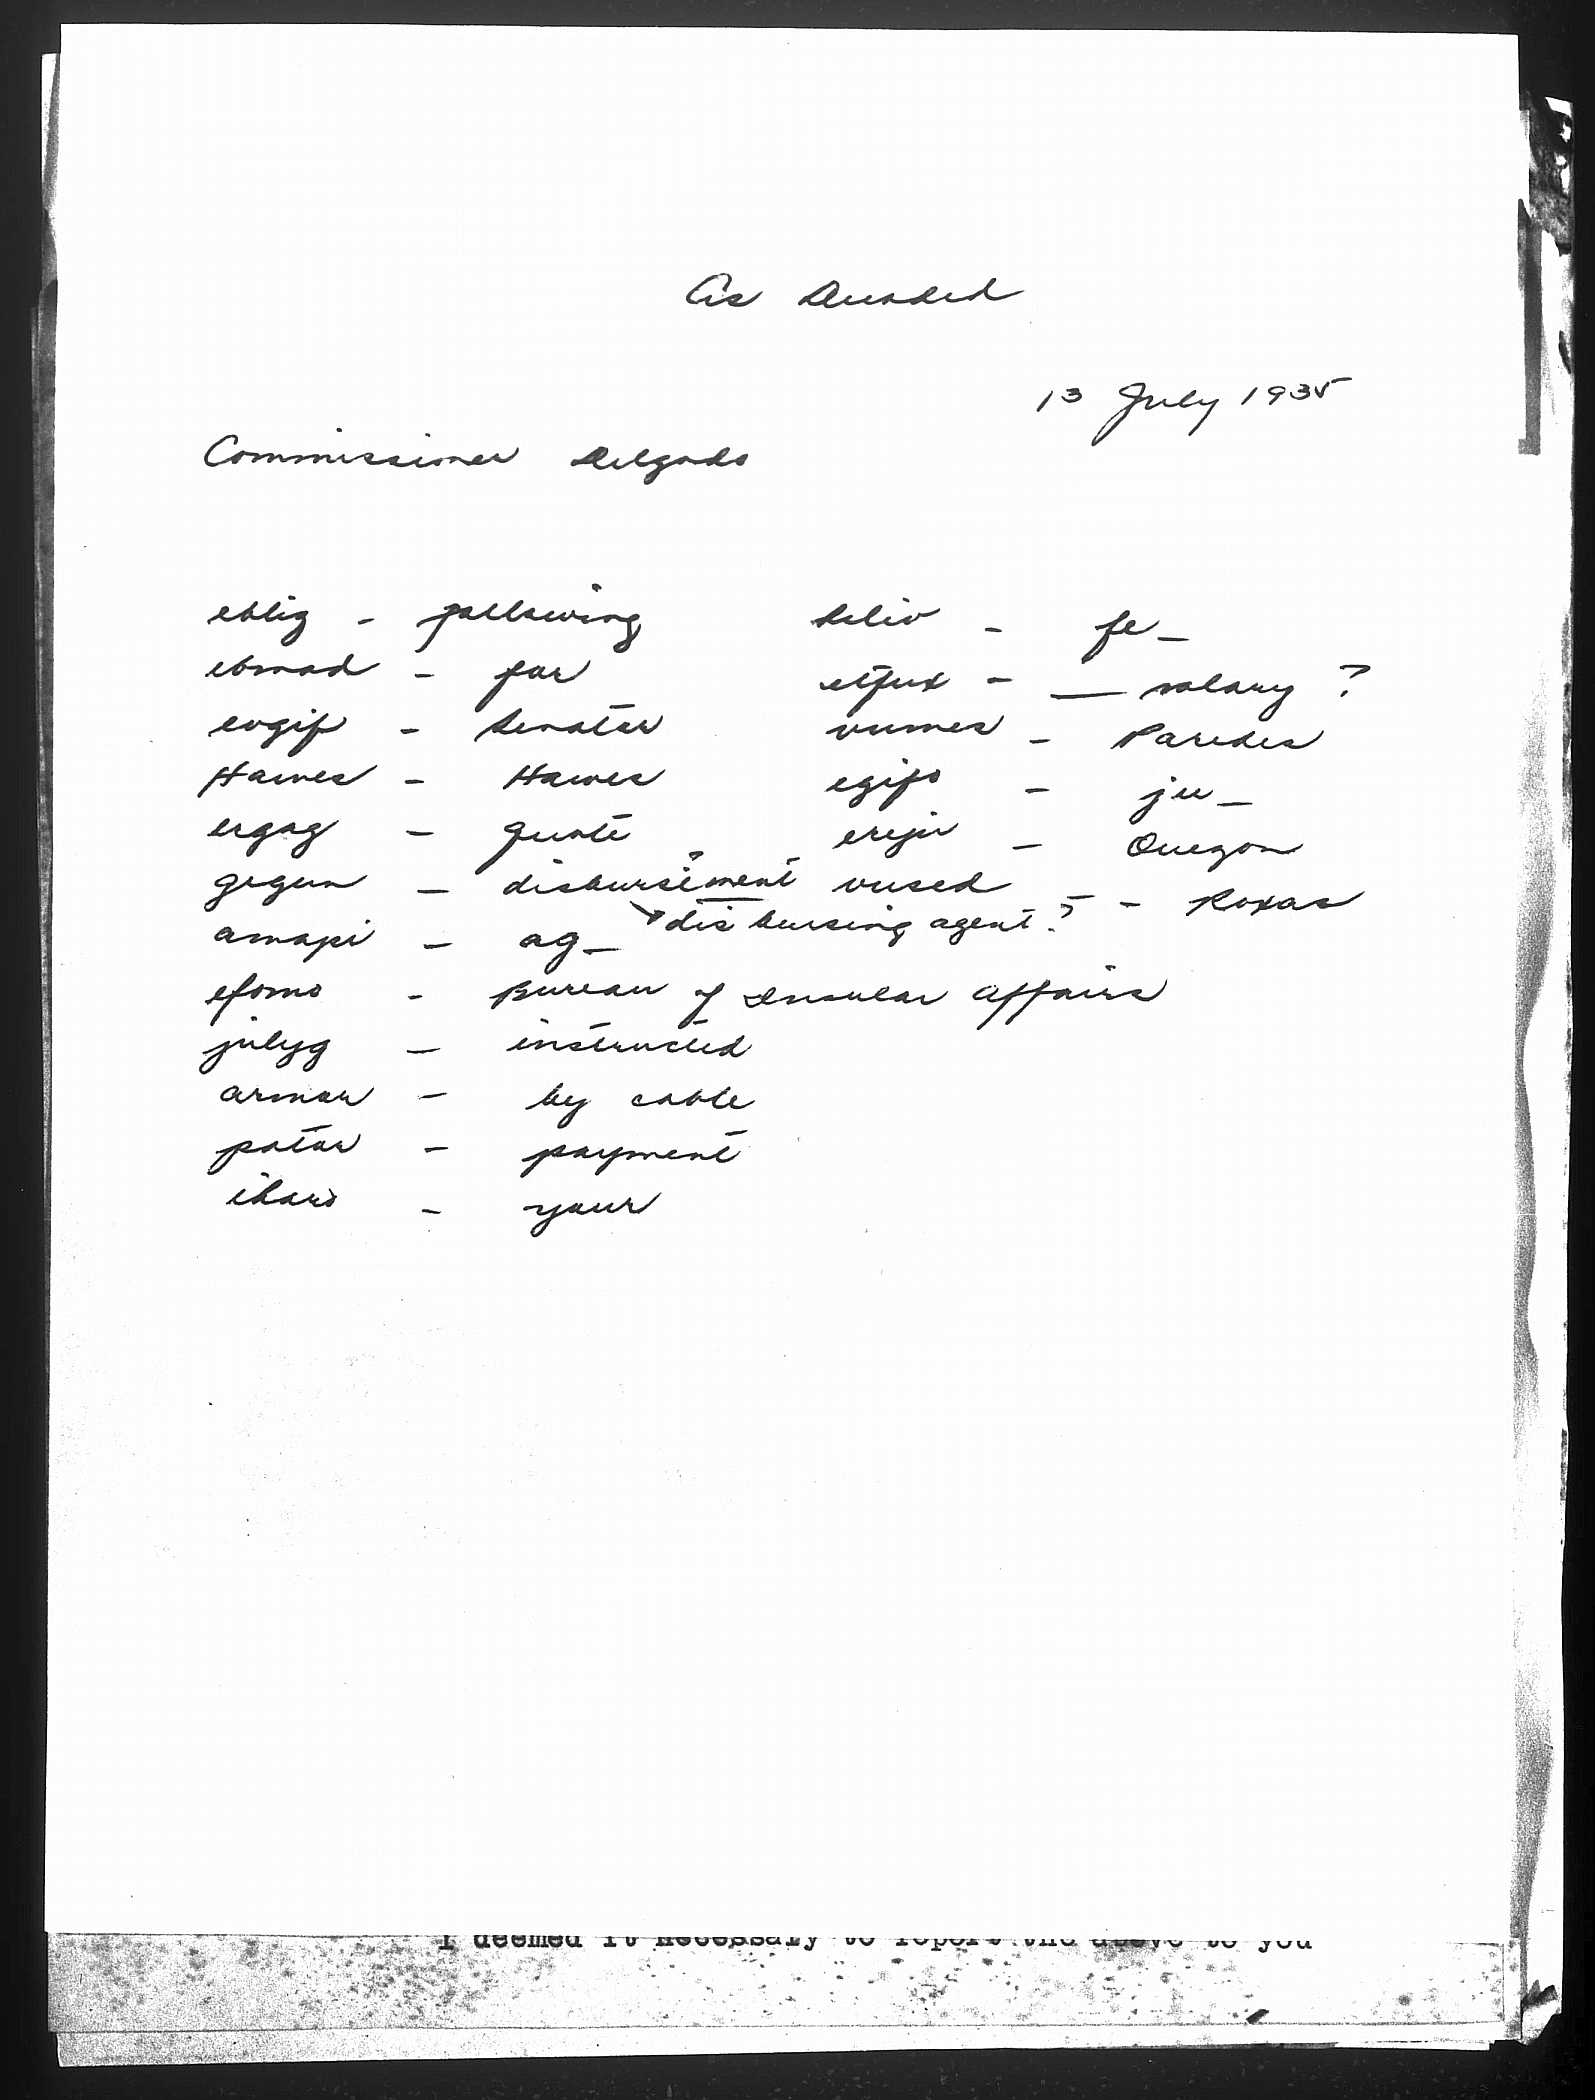 As Decoded
13 July 1935
Commissioner Delgado
eblig - following
ebmad - for
evgif - Senator
Hawes - Hawes
ergag - quote
gegun - disbursement ?
disbursing agent?
amapi - ag_
efomo - Bureau of Insular Affairs
julyg - instructed
armar - by cable
patar - payment
iharo - your
deliv - fe_
etfux - __ salary ?
vumes - Paredes
egifo - je_
ereju - Quezon
vused - - Roxas
I deemed it necessary to report the above to you